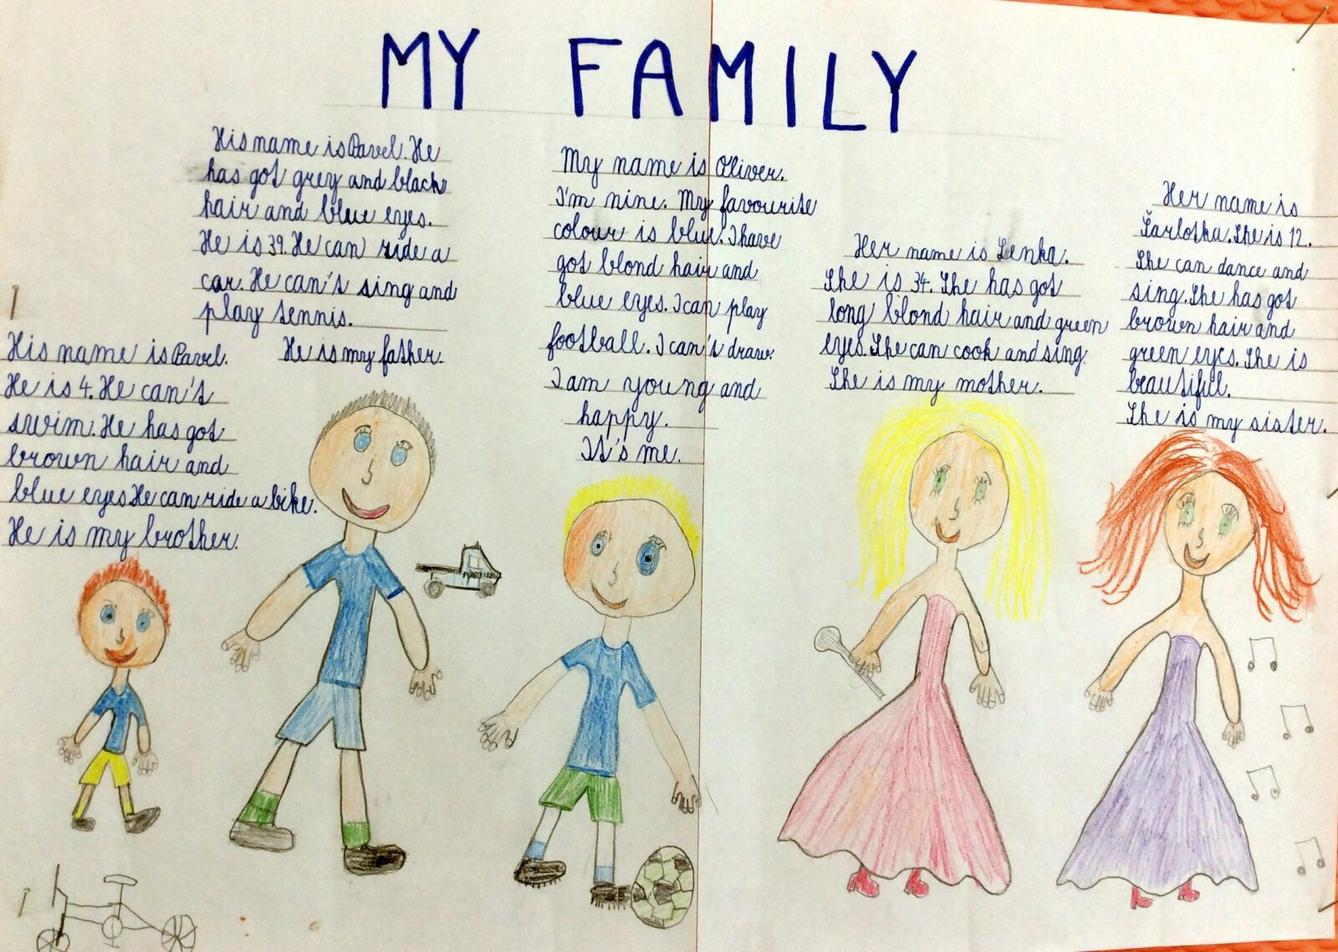 MY FAMILY
His name is Pavel. He
has got grey and black
hair and blue eyes.
He is 39. He can ride a
car. He can't sing and
play tennis.
He is my father.
His name is Pavel.
He is 4. He can't
swim. He has got
brown hair and
blue eyes. He can ride a bike.
He is my brother.
My name is Oliver.
I'm nine. My favourite
colour is blue. I have
got blond hair and
blue eyes. I can play
football. I can't draw.
I am young and
happy.
It's me.
Her name is Lenka.
She is 34. She has got
long blond hair and green
eyes. She can cook and sing.
She is my mother.
Her name is
Šarlotka. She is 12.
She can dance and
sing. She has got
brown hair and
green eyes. She is
beautiful.
She is my sister.